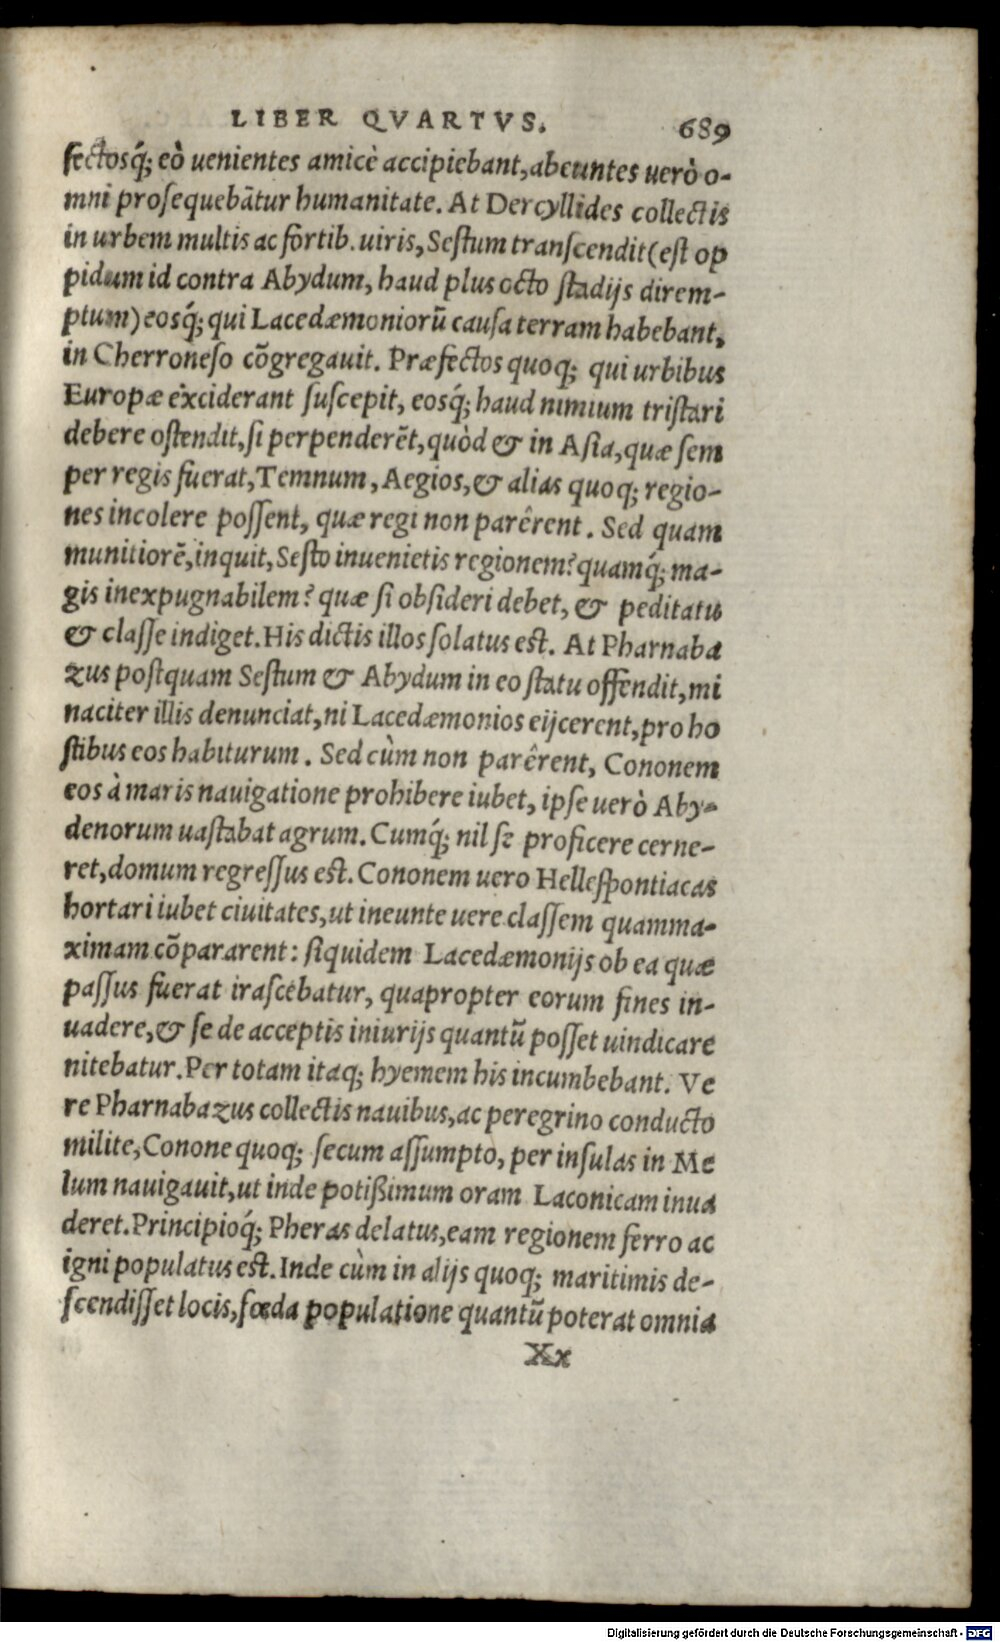 LIBER QVARTVS. 689
fectosq́; eò uenientes amicè accipiebant, abeuntes uerò o-
mni proſequebātur humanitate. At Dercyllides collectis
in urbem multis ac fortib. uiris, Seſtum tranſcendit (eſt op
pidum id contra Abydum, haud plus octo ſtadijs direm-
ptum) eosq́; qui Lacedæmoniorū cauſa terram habebant,
in Cherroneſo cōgregauit. Præfectos quoq; qui urbibus
Europæ exciderant ſuſcepit, eosq́; haud nimium triſtari
debere oſtendit, ſi perpenderēt, quòd & in Aſia, quæ ſem
per regis fuerat, Temnum, Aegios, & alias quoq; regio-
nes incolere poſſent, quæ regi non parêrent. Sed quam
munitiorē, inquit, Seſto inuenietis regionem? quamq́; ma-
gis inexpugnabilem? quæ ſi obſideri debet, & peditatu
& claſſe indiget. His dictis illos ſolatus eſt. At Pharnaba
zus poſtquam Seſtum & Abydum in eo ſtatu offendit, mi
naciter illis denunciat, ni Lacedæmonios eijcerent, pro ho
ſtibus eos habiturum. Sed cùm non parêrent, Cononem
eos à maris nauigatione prohibere iubet, ipſe uerò Aby-
denorum uaſtabat agrum. Cumq́; nil ſe proficere cerne-
ret, domum regreſſus eſt. Cononem uero Helleſpontiacas
hortari iubet ciuitates, ut ineunte uere claſſem quamma-
ximam cōpararent: ſiquidem Lacedæmonijs ob ea quæ
paſſus fuerat iraſcebatur, quapropter eorum fines in-
uadere, & ſe de acceptis iniurijs quantū poſſet uindicare
nitebatur. Per totam itaq; hyemem his incumbebant. Ve
re Pharnabazus collectis nauibus, ac peregrino conducto
milite, Conone quoq; ſecum aſſumpto, per inſulas in Me
lum nauigauit, ut inde potiſſimum oram Laconicam inua
deret. Principioq́; Pheras delatus, eam regionem ferro ac
igni populatus eſt. Inde cùm in alijs quoq; maritimis de-
ſcendiſſet locis, fœda populatione quantū poterat omnia
Xx
Digitalisierung gefördert durch die Deutsche Forschungsgemeinschaft - DFG